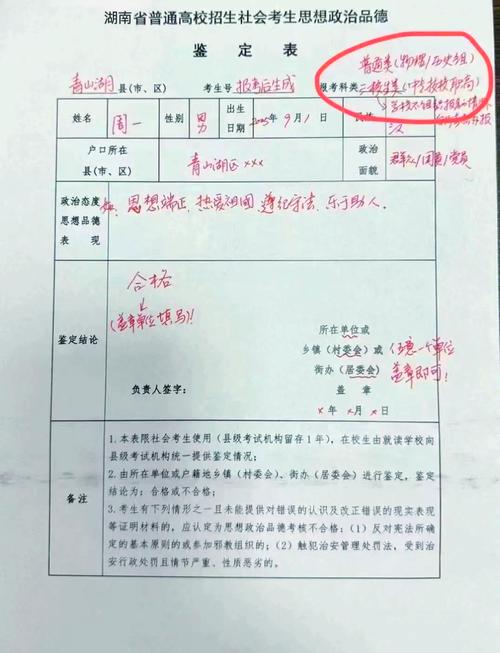 湖南省普通高校招生社会考生思想政治品德
鉴 定 表
普通类(物理/历史组)
青山湖 县(市、区) 考生号 报高后生成 报考科类 三校生类(中专技校职高)
姓名 周一 性别 男 出生日期 9月1日
汉
户口所在县(市、区) 青山湖区××× 政治面貌 群众/团员/党员
政治态度思想品德表 现 思想端正、热爱祖国 遵纪守法、乐于助人.
合格
(盖章单位填写)!
鉴定结论
所在单位或
乡镇(村委会)或 任意一个单位
街办(居委会) 盖章即可!
负责人签字: 盖 章
×年 ×月×日
备注
1.本表限社会考生使用(县级考试机构留存1年),在校生由就读学校向
县级考试机构统一提供鉴定情况;
2.由所在单位或户籍地乡镇(村委会)、街办(居委会)进行鉴定,鉴定
结论为:合格或不合格;
3.考生有下列情形之一且未能提供对错误的认识及改正错误的现实表现
等证明材料的,应认定为思想政治品德考核不合格:(1)反对宪法所确定
的基本原则的或参加邪教组织的;(2)触犯治安管理处罚法,受到治
安行政处罚且情节严重、性质恶劣的。